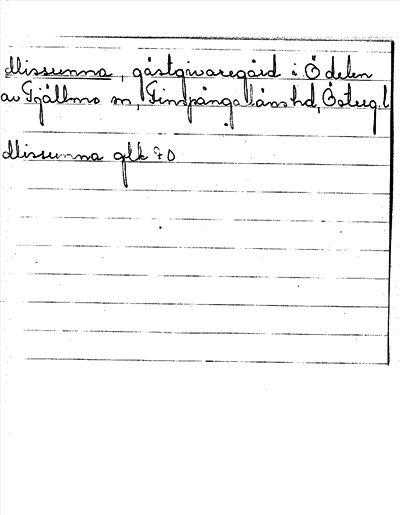 Missunna, gästgivaregård i Ö delen
av Tjällmo sn, Finspånga läns hd, Östergl.
Missunna glk 70